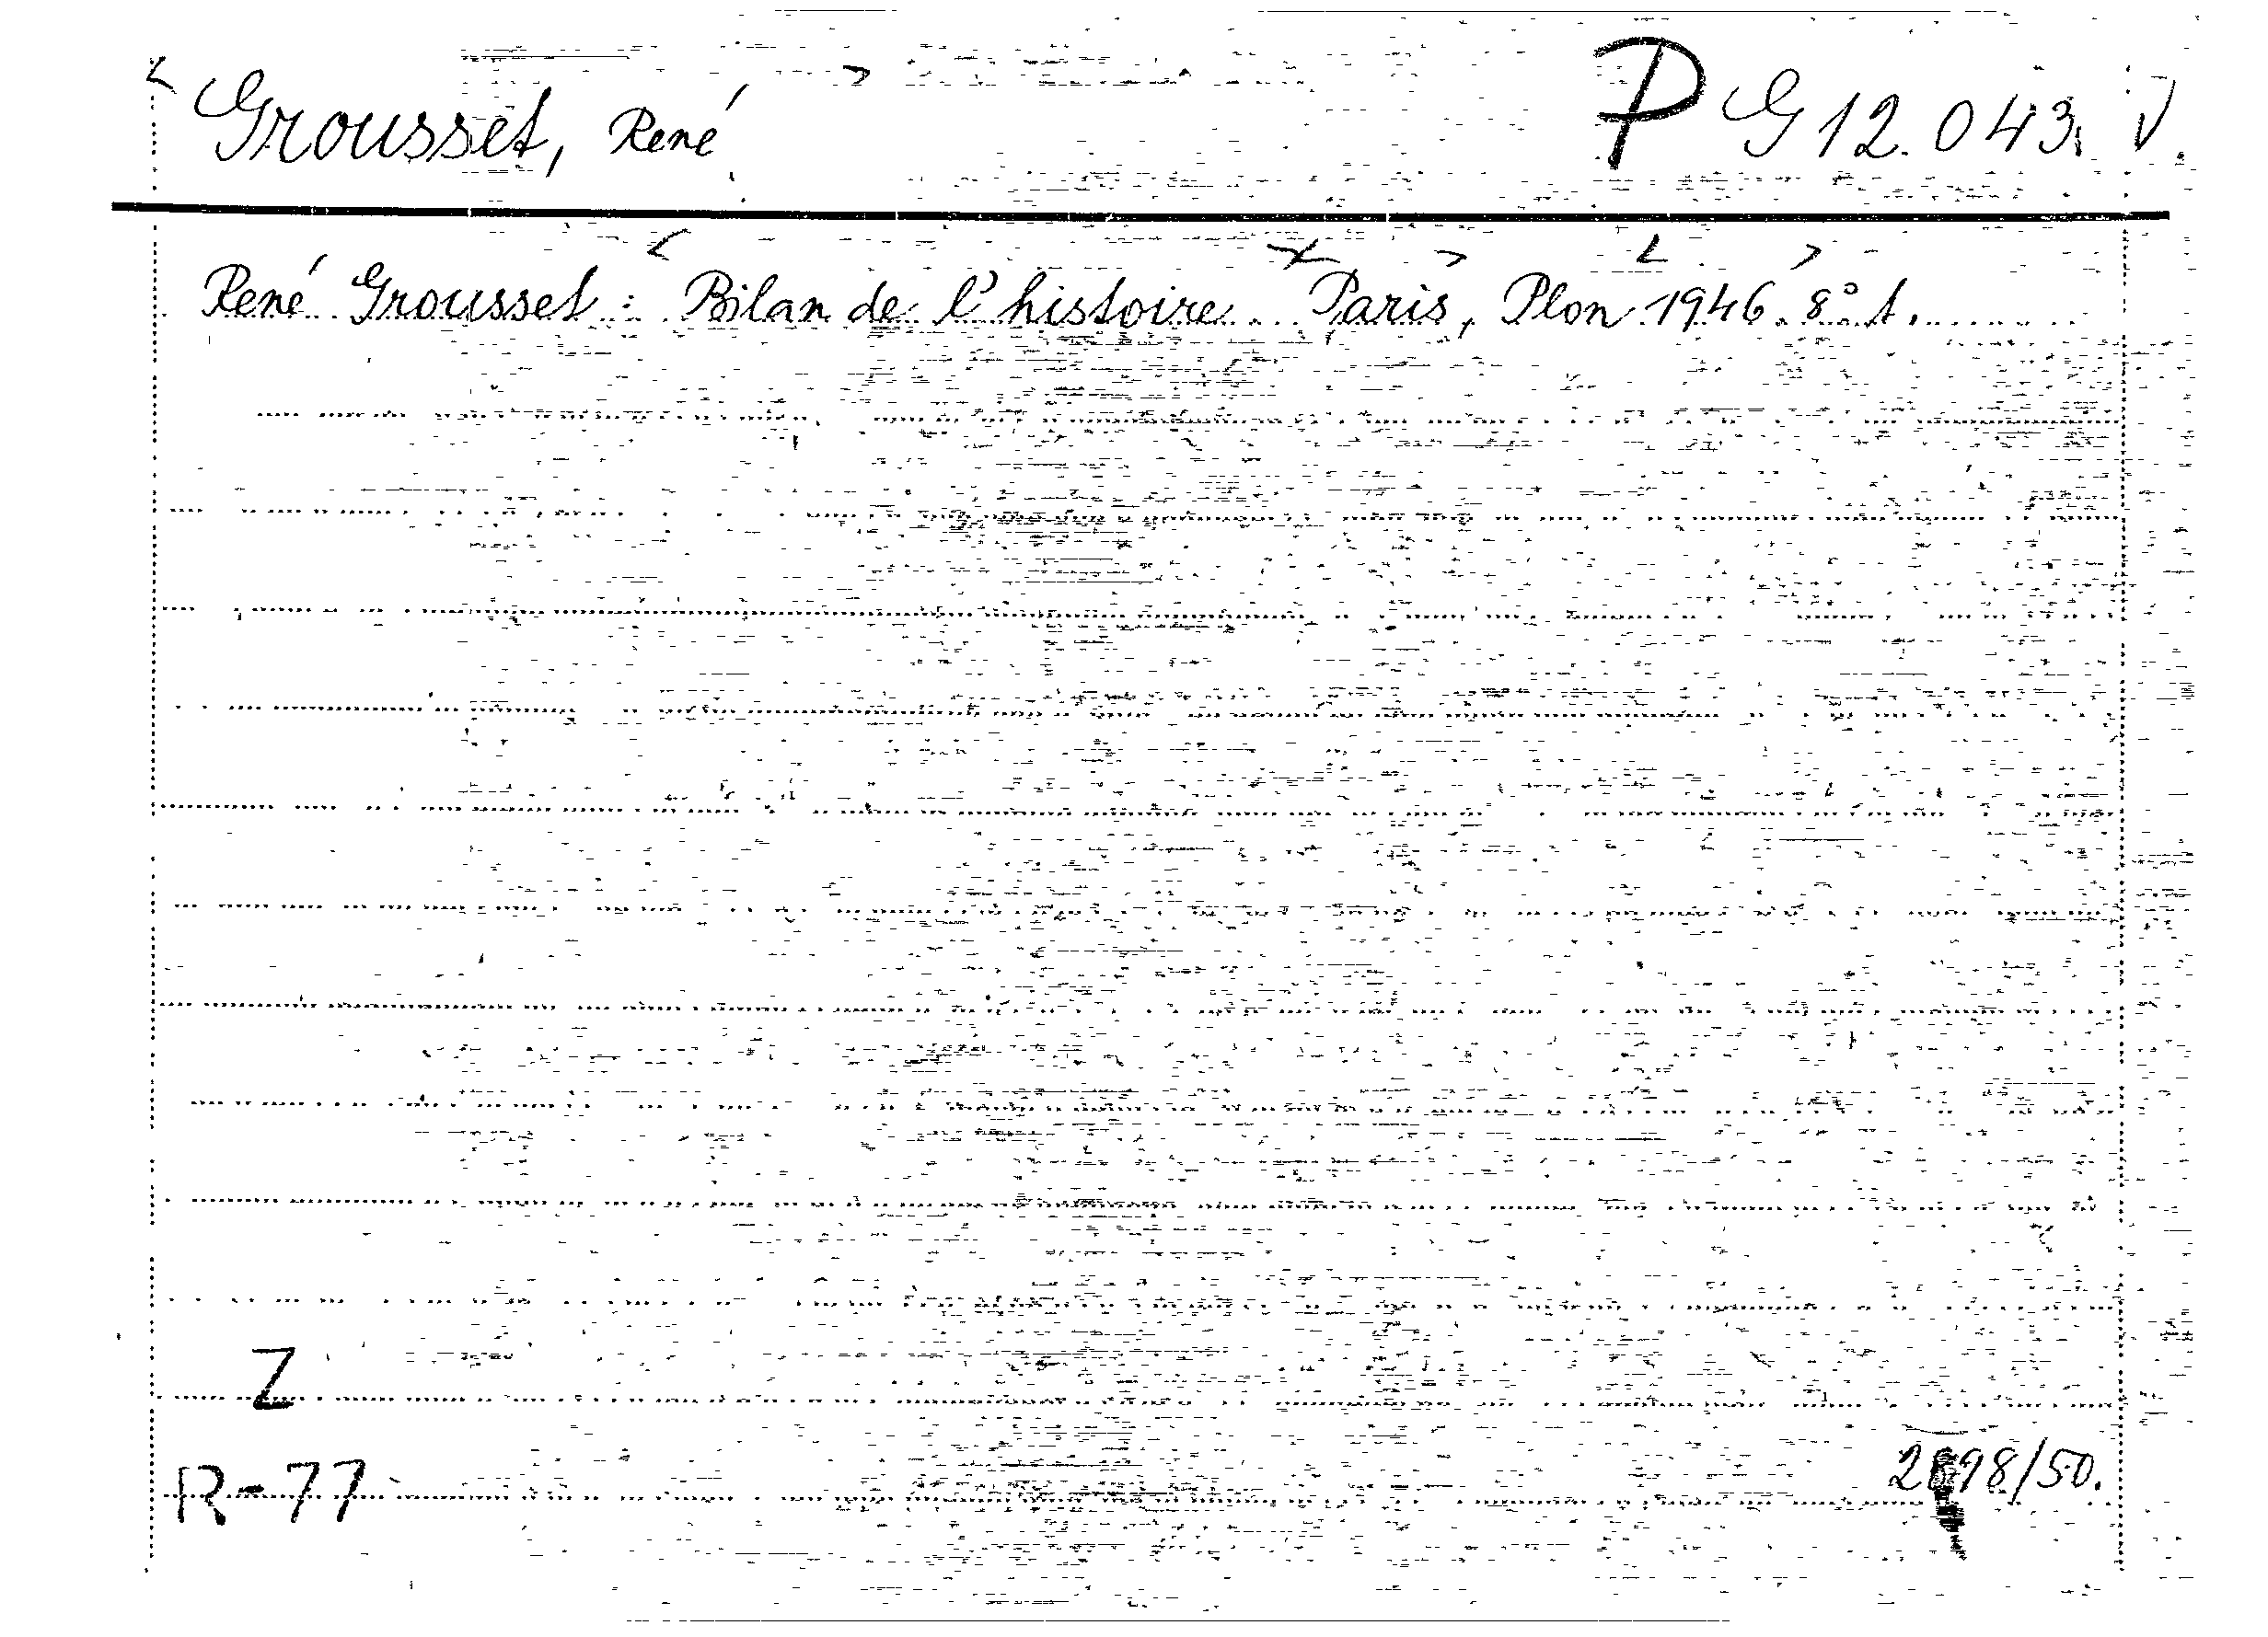 Grousset, René P G 12.043. V.
René Grousset: Bilan de l'histoire. Paris, Plon 1946. 8° t.
Z
R-77 2898/50.